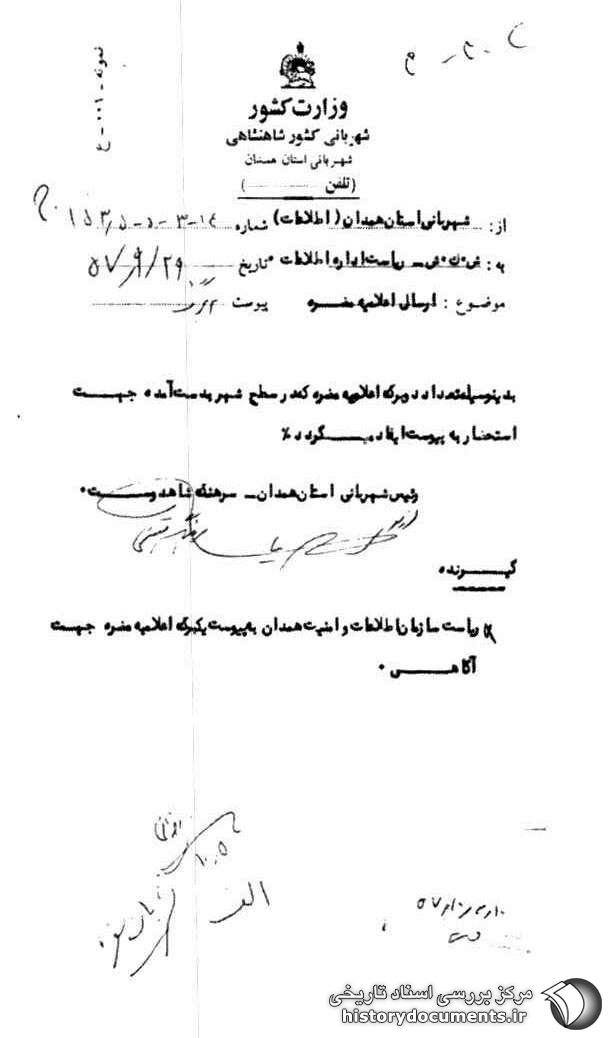 نمونه - ۰۰۱ - ع
وزارت کشور
شهربانی کشور شاهنشاهی
شهربانی استان همدان
(تلفن ............ )
از: شهربانی استان همدان (اطلاعات) شماره ۱۴-۳-۵-
به: ش.ک.ش - ریاست اداره اطلاعات تاریخ ۵۷/۹/۲۹
موضوع: ارسال اعلامیه مضره پیوست
بدینوسیله تعداد دو برگ اعلامیه مضره که در سطح شهر بدست آمده جهت
استحضار به پیوست ایفاد میگردد٪
رئیس شهربانی استان همدان - سرهنگ شاهدوست۰
گیرنده
ریاست سازمان اطلاعات و امنیت همدان به پیوست یکبرگ اعلامیه مضره جهت
آگاهی ۰
الف
مرکز بررسی اسناد تاریخی
historydocuments.ir